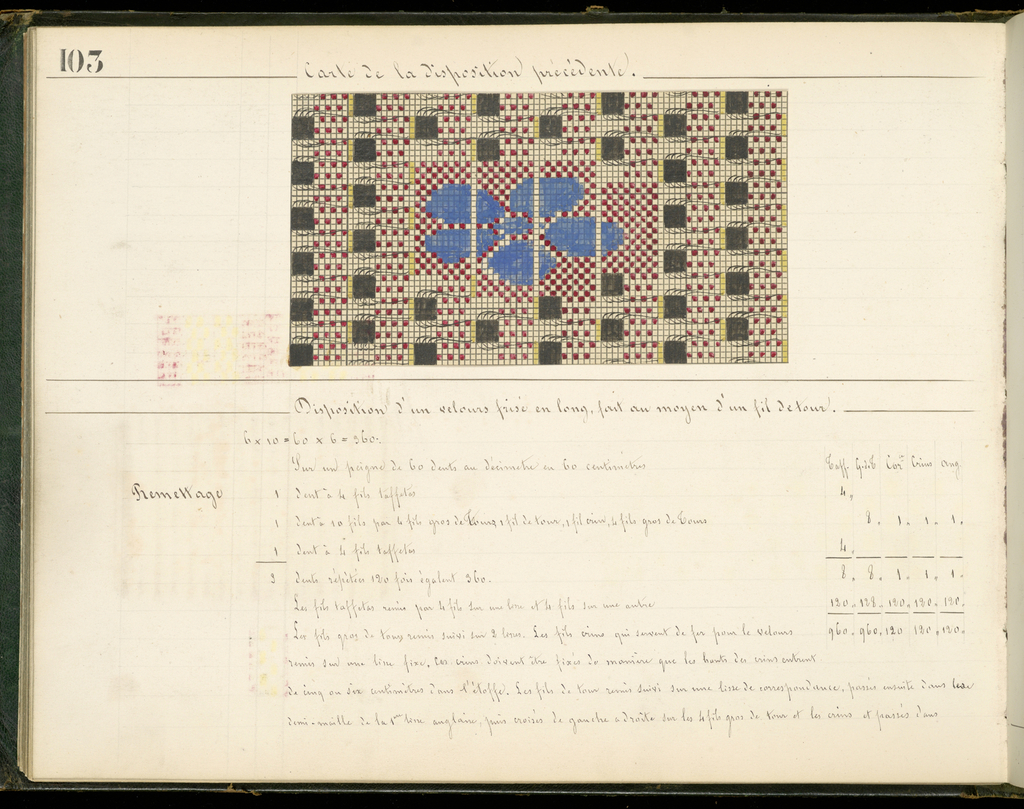 103
Carte de la disposition précédente.
Disposition d'un velours frisé en long, fait au moyen d'un fil de tour.
6 x 10 = 60 x 6 = 360.
Sur un peigne de 60 dents au décimetre en 60 centimetres
Taff. G.d.T. Cor.ce Crins Ang.
Remettage 1 dent à 4 fils taffetas 4.
1 dent à 10 fils par 4 fils gros de Tours, 1 fil de tour, 1 fil crin, 4 fils gros de Tours 8. 1. 1. 1.
1 dent à 4 fils taffetas 4.
3 dents répétées 120 fois égalent 360. 8. 8. 1. 1. 1.
Les fils taffetas remis par 4 fils sur une lisse et 4 fils sur une autre 120. 128. 120. 120. 120.
Les fils gros de tours remis suivi sur 2 lisses. Les fils crins qui servent de fer pour le velours 960. 960. 120 120. 120.
remis sur une lisse fixe. Ces crins doivent être fixés de manière que les bouts des crins entrent
de cinq ou six centimètres dans l'étoffe. Les fils de tour remis suivi sur une lisse de correspondance, passés ensuite dans
demi-maille de la 1ère lisse anglaise, puis croisés de gauche a droite sur les 4 fils gros de tour et les crins et passés dans